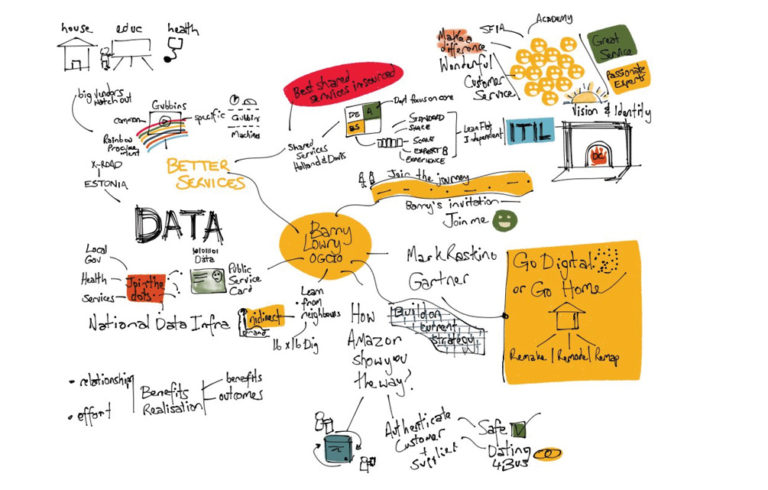 house
educ
health
big vendors
watch out
Gubbins
common
specific
Gubbins
Machines
Rainbow
Procure
ment
X-ROAD
ESTONIA
BETTER
SERVICES
Best shared
services insourced
Dept focus on core
A
Shared
Services
STANDARD
SPACE
SCALE
EXPERT &
EXPERIENCE
Lean Flat
Independent
ITIL
Make a
difference
SFIA
ACADEMY
Wonderful
Customer
Service
Great
Service
Passionate
Experts
Vision & Identity
Join the journey
Barry's invitation
Join me
DATA
Barry
Lowry
OGCIO
Local
Gov
Health
Services
Join-the
dots
Data
Public
Service
Card
National Data Infra
nidirect
Learn
from
neighbours
16 x 16 Dig
Mark Raskino
Gartner
Go Digital
or Go Home
Remake | Remodel | Remap
Build on
current
strategy
How
Amazon
show you
the way?
relationship
effort
Benefits
Realisation
benefits
outcomes
Authenticate
Customer
+
Supplier
Safe
Dating
4 Bus